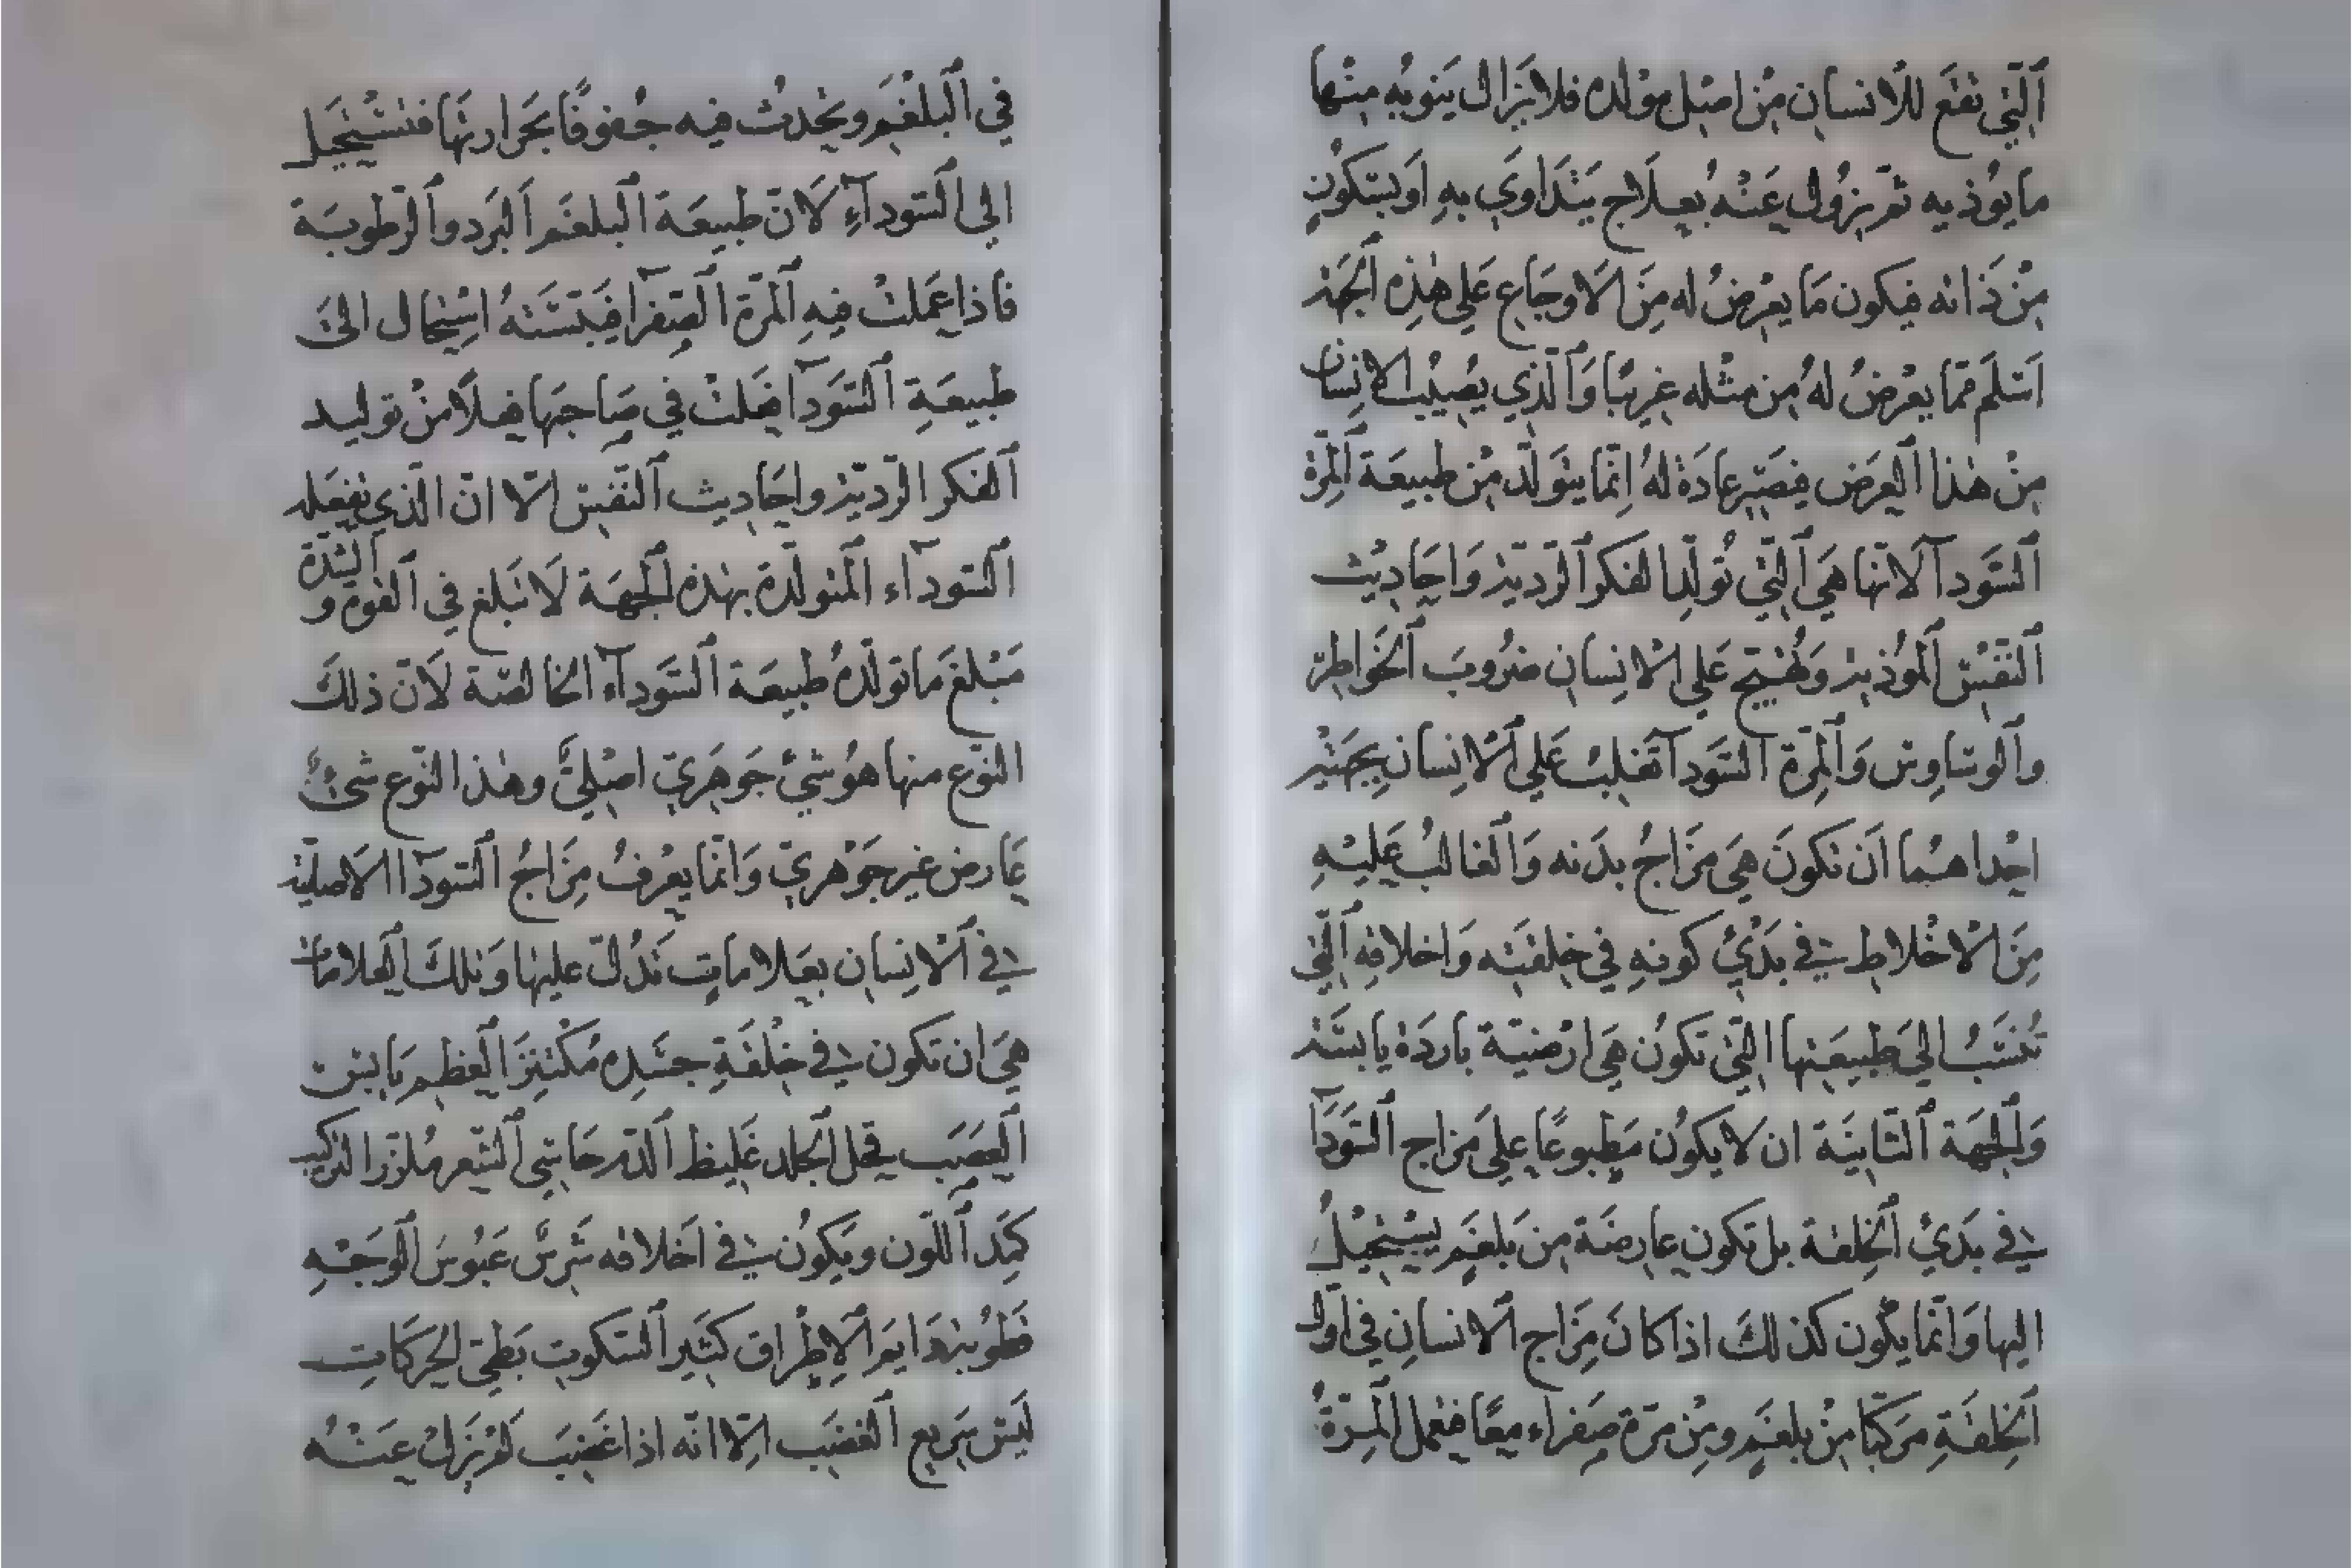 التي تقع للانسان من اصل مولده فلا يزال ينوبه منها
ما يوذيه ثم يزول عنه بعلاج يتداوي به او بسكون
من ذاته فيكون ما يعرض له من الاوجاع علي هذه الجهة
اسلم مما يعرض له من مثله غريبا والذي يصيب الانسان
من هذا العرض فيصير عادة له انما يتولد من طبيعة المرة
السودآ لانها هي التي تولد الفكر الردية واحاديث
النفس الموذية وتهيج علي الانسان ضروب الخواطر
والوساوس والمرة السودآ تغلب علي الانسان بجهتين
احداهما ان تكون هي مزاج بدنه والغالب عليه
من الاخلاط في بدئ كونه في خلقته واخلاقه التي
تنسب الي طبيعتها التي تكون هي ارضية باردة يابسة
والجهة الثانية ان لا يكون مطبوعا علي مزاج السودآ
في بدئ الخلقة بل تكون عارضة من بلغم يستحيل
اليها وانما يكون كذلك اذا كان مزاج الانسان في اول
الخلقة مركبا من بلغم ومن مرة صفراء معا فتعمل المرة
في البلغم ويحدث فيه جفوفا بحرارتها فتستحيل
الي السودآء لان طبيعة البلغم البرد والرطوبة
فاذا عملت فيه المرة الصفرآ فيبسته استحال الى
طبيعة السودآ فعلت في صاحبها فعلا من توليد
الفكر الردية واحاديث النفس الا ان الذي تفعله
السودآء المتولدة بهذه الجهة لا تبلغ في القوة و الشدة
مبلغ ما تولده طبيعة السودآء الخالصة لان ذلك
النوع منها هو شئ جوهري اصلي وهذا النوع شئ
عارض غير جوهري وانما يعرف مزاج السودآ الاصلية
في الانسان بعلامات تدل عليها وتلك العلامات
هي ان تكون في خلقة جسده مكتنز العظم يابس
العصب قحل الجلد غليظ الدم حاسي الشعر ملزز التركيب
كمد اللون ويكون في اخلاقه شرس عبوس الوجه
دايم الاطراق كثير السكوت بطئ الحركات
ليس سريع الغضب الا انه اذا غضب لم يزل عنه